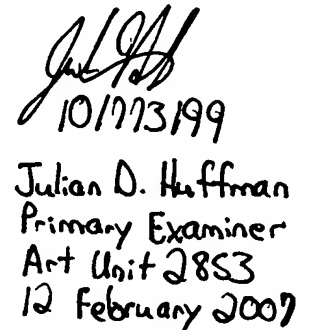 10/773,199
Julian D. Huffman
Primary Examiner
Art Unit 2853
12 February 2007